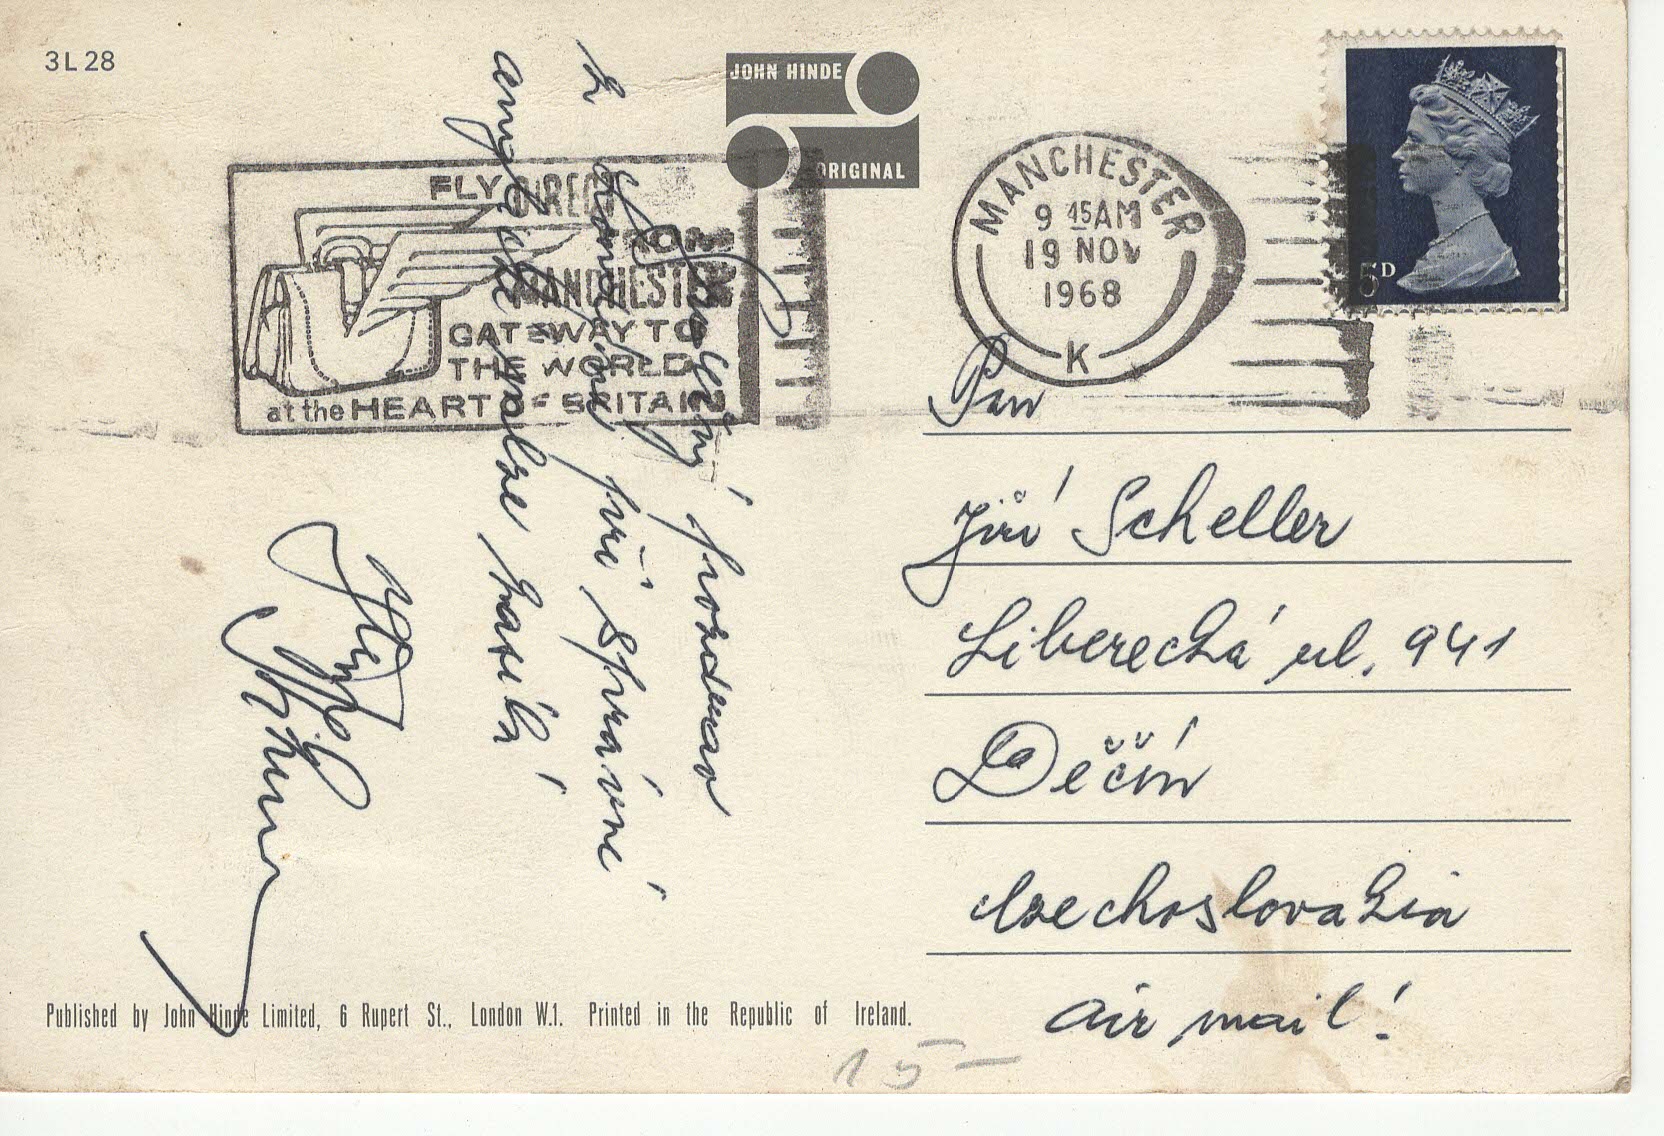 3L28
JOHN HINDE
ORIGINAL
FLY DIRECT
FROM
MANCHESTER
GATEWAY TO
THE WORLD
at the HEART OF BRITAIN
MANCHESTER
9 45AM
19 NOV
1968
K
5D
Srdečný pozdrav
z při správné
anglické mlze zasílá
Pan
Jiří Scheller
Liberecká ul. 941
Děčín
Czechoslovakia
air mail!
Published by John Hinde Limited, 6 Rupert St., London W.1. Printed in the Republic of Ireland.
15-